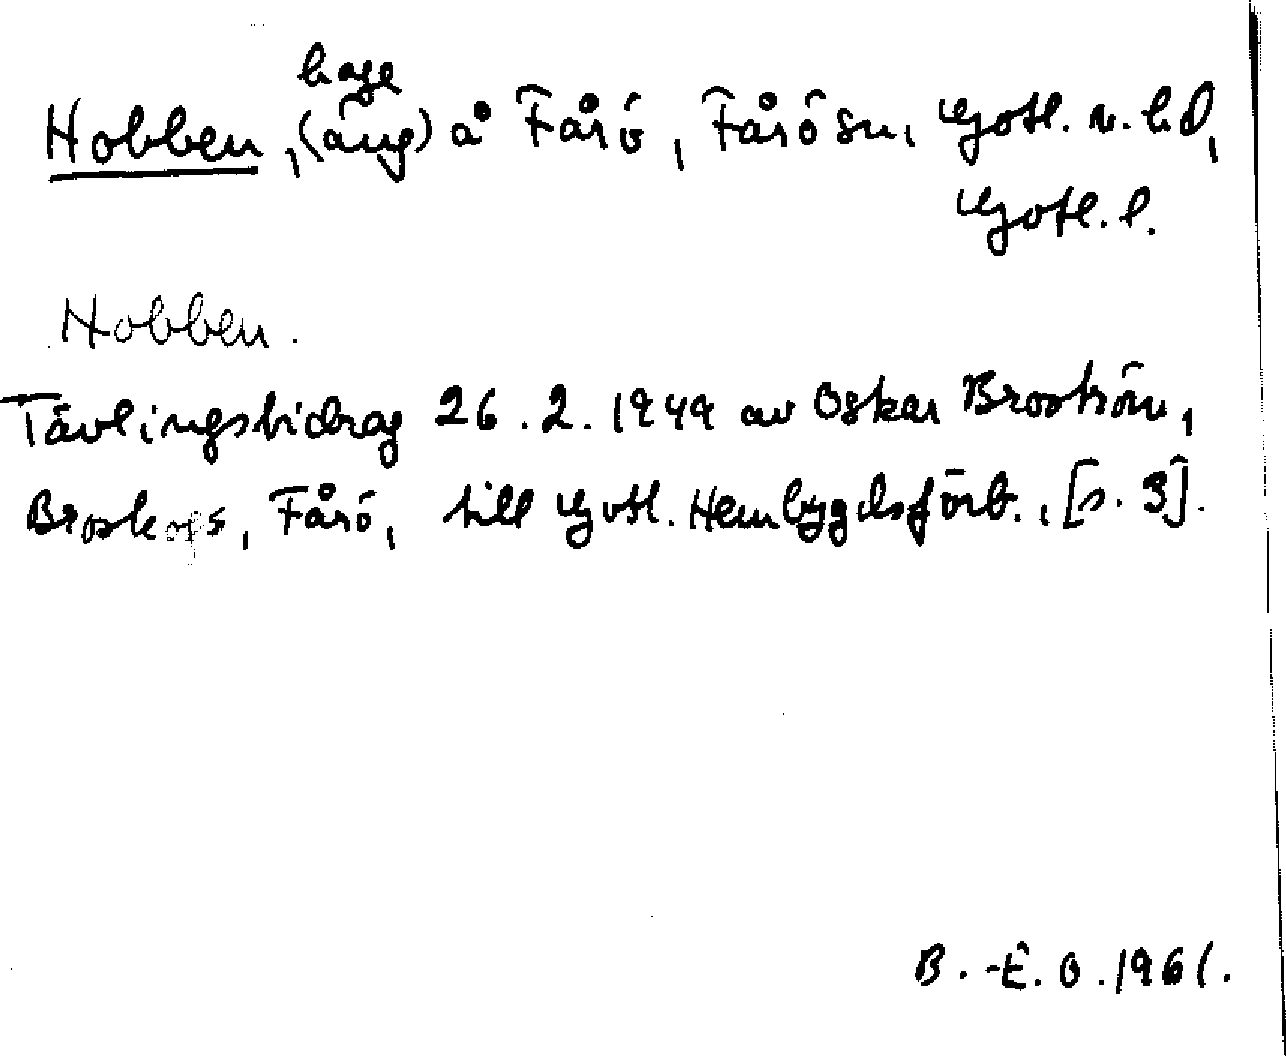 hage
Hobben, (äng) å Fårö, Fårö sn, Gotl. n. hd,
Gotl. l.
Hobben.
Tävlingsbidrag 26.2.1949 av Oskar Broström,
Broskogs, Fårö, till Gotl. Hembygdsförb., [s. 3].
B.-E.O. 1961.